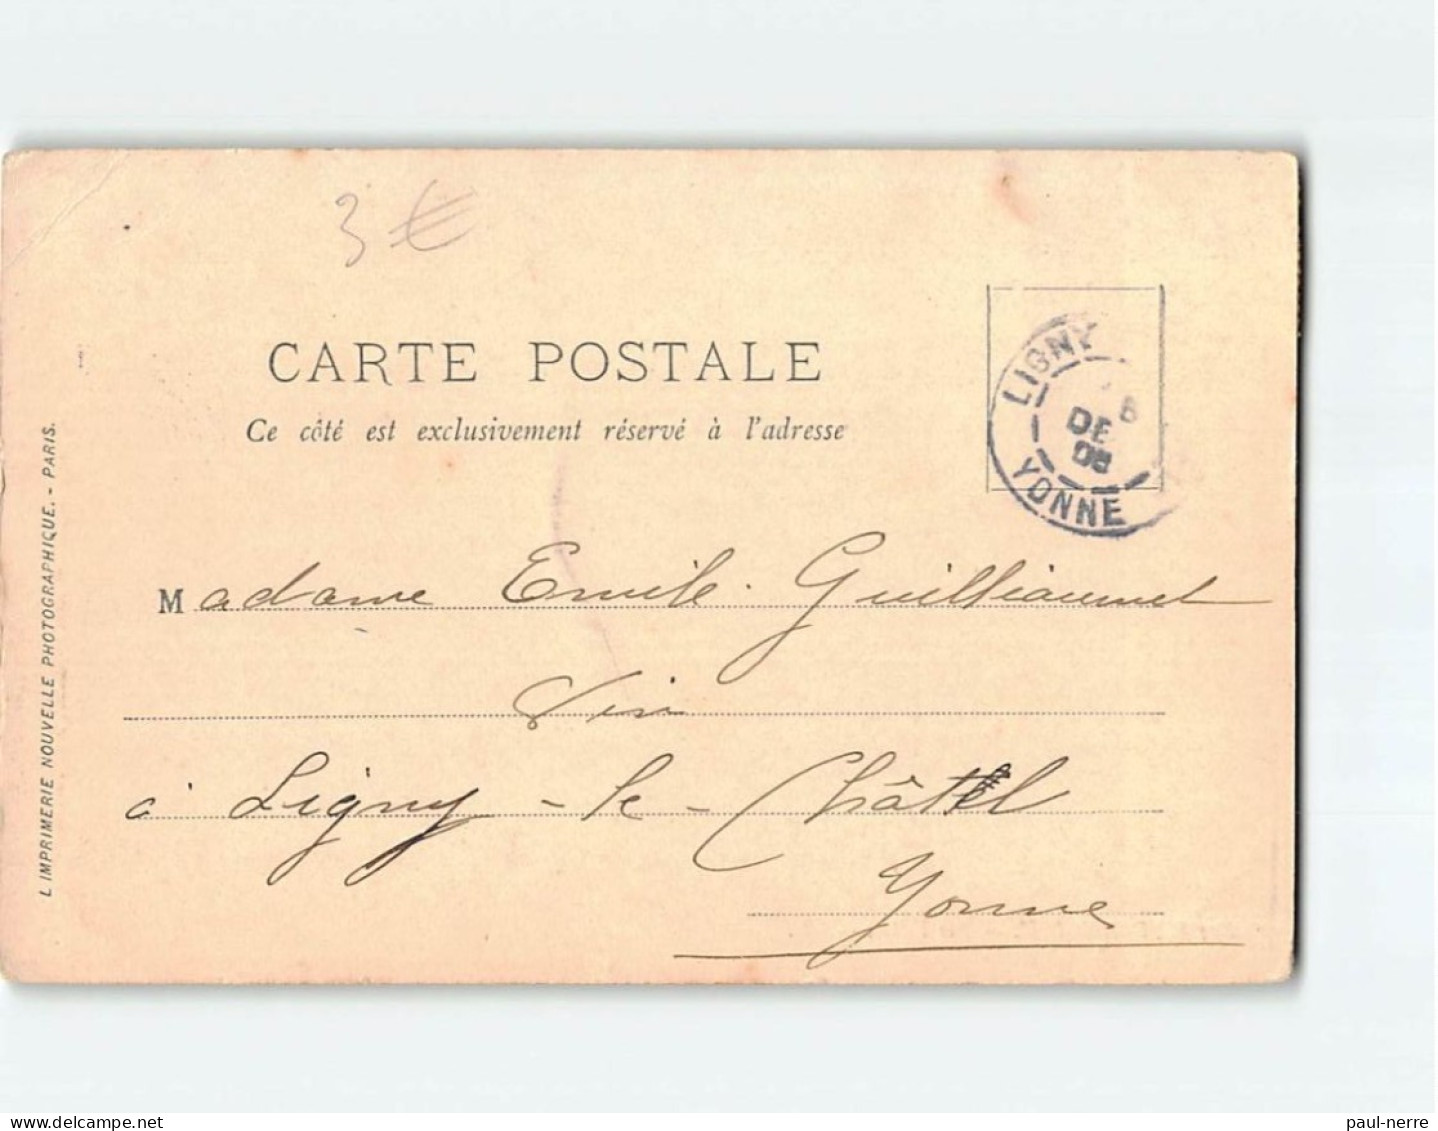 3 €
CARTE POSTALE
Ce côté est exclusivement réservé à l'adresse
LIGNY
DE
YONNE
Madame Emile Guilliaumet
à Ligny-le-Châtel
Yonne
L IMPRIMERIE NOUVELLE PHOTOGRAPHIQUE. - PARIS.
delcampe.net
paul-nerre